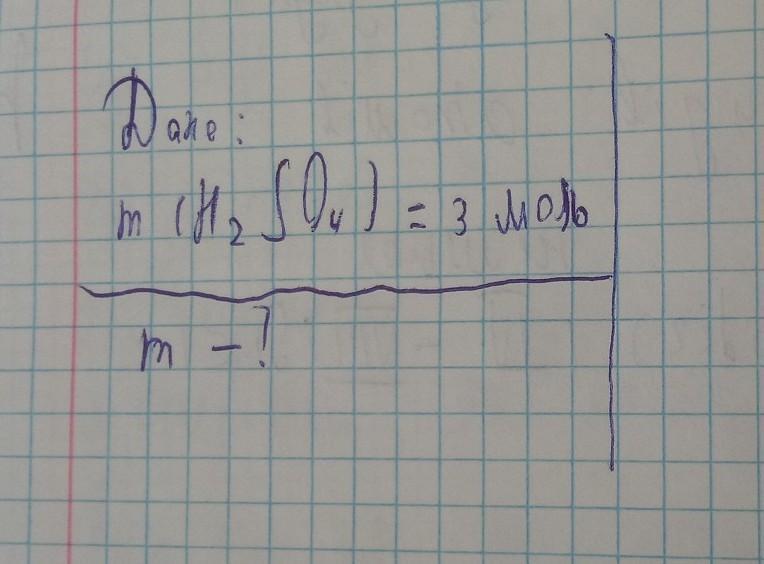 Дано:
m (H₂SO₄) = 3 моль
m – ?